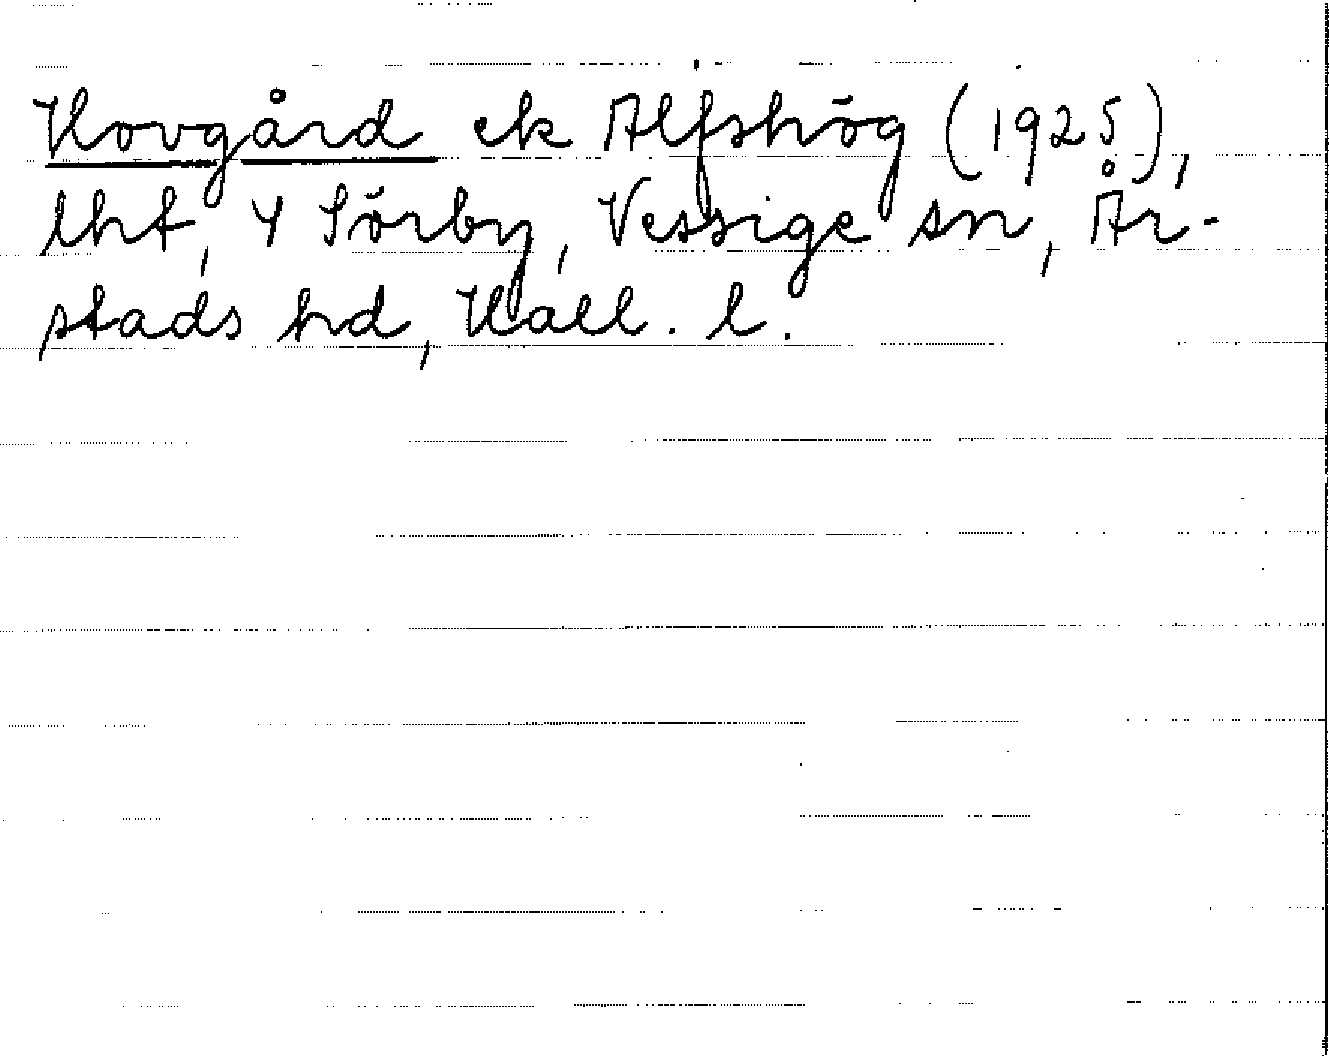 Hovgård ek Alfshög (1925),
lht, 4 Sörby, Vessige sn, År-
stads hd, Hall. l.